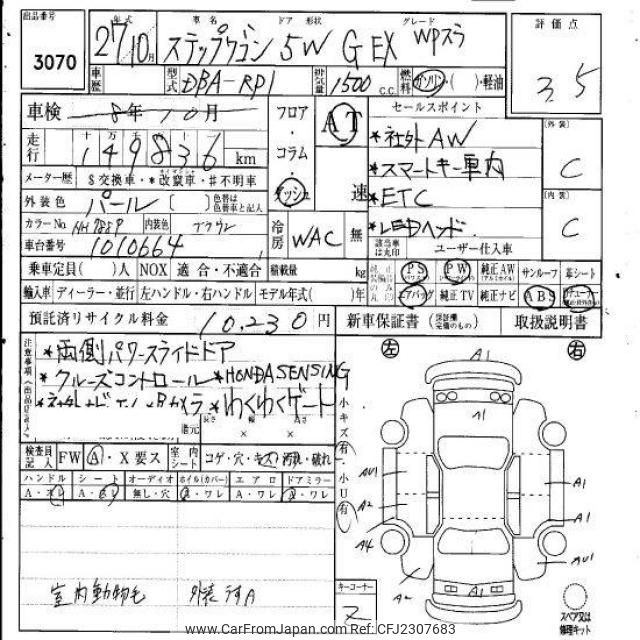 出品番号 3070
年式 27 10月
車名 ステップワゴン
ドア 形状 5W
グレード G EX WPスラ
評価点 3.5
車歴
型式 DBA-RP1
排気量 1500 C.C.
燃料 ガソリン・( )・軽油
車検 8年10月
フロア・コラム・ダッシュ
AT 速
セールスポイント
*社外AW
*スマートキー車内
*ETC
*LEDヘッド.
[外装] C
[内装] C
走行 十 万 千 百 十 一
149836 km
メーター歴 $交換車・*改竄車・#不明車
外装色 パール [ ] 色替は色替車と記入
カラーNo. NH788P 内装色
車台番号 1010664
冷房 WAC 無
該当車は丸印
ユーザー仕入車
乗車定員( )人 NOX 適合・不適合 積載量 kg
輸入車 ディーラー・並行 左ハンドル・右ハンドル モデル年式( )年
PS PW 純正AW サンルーフ 革シート
エアバッグ 純正TV 純正ナビ ABS
預託済リサイクル料金 10,230 円
新車保証書 取扱説明書
*両側パワースライドドア
*クルーズコントロール *HONDA SENSING
*わくわくゲート
長さ 幅 高さ
× ×
小キズ(有)・小U(有)
左 右
検査員記入 FW A・X要ス 室内シート コゲ・穴・キズ・汚れ・破れ
ハンドル シート オーディオ ホイル(カバー) エアロ ドアミラー
A・スレ A・ 無し・穴 A・ワレ A・ワレ A・ワレ
室内動物毛 外装
キーコーナー
2
A1
A1
AU1
A2
A4
A2
A1
A1
A1
AU1
A1
スペア又は修理キット
www.CarFromJapan.com Ref:CFJ2307683